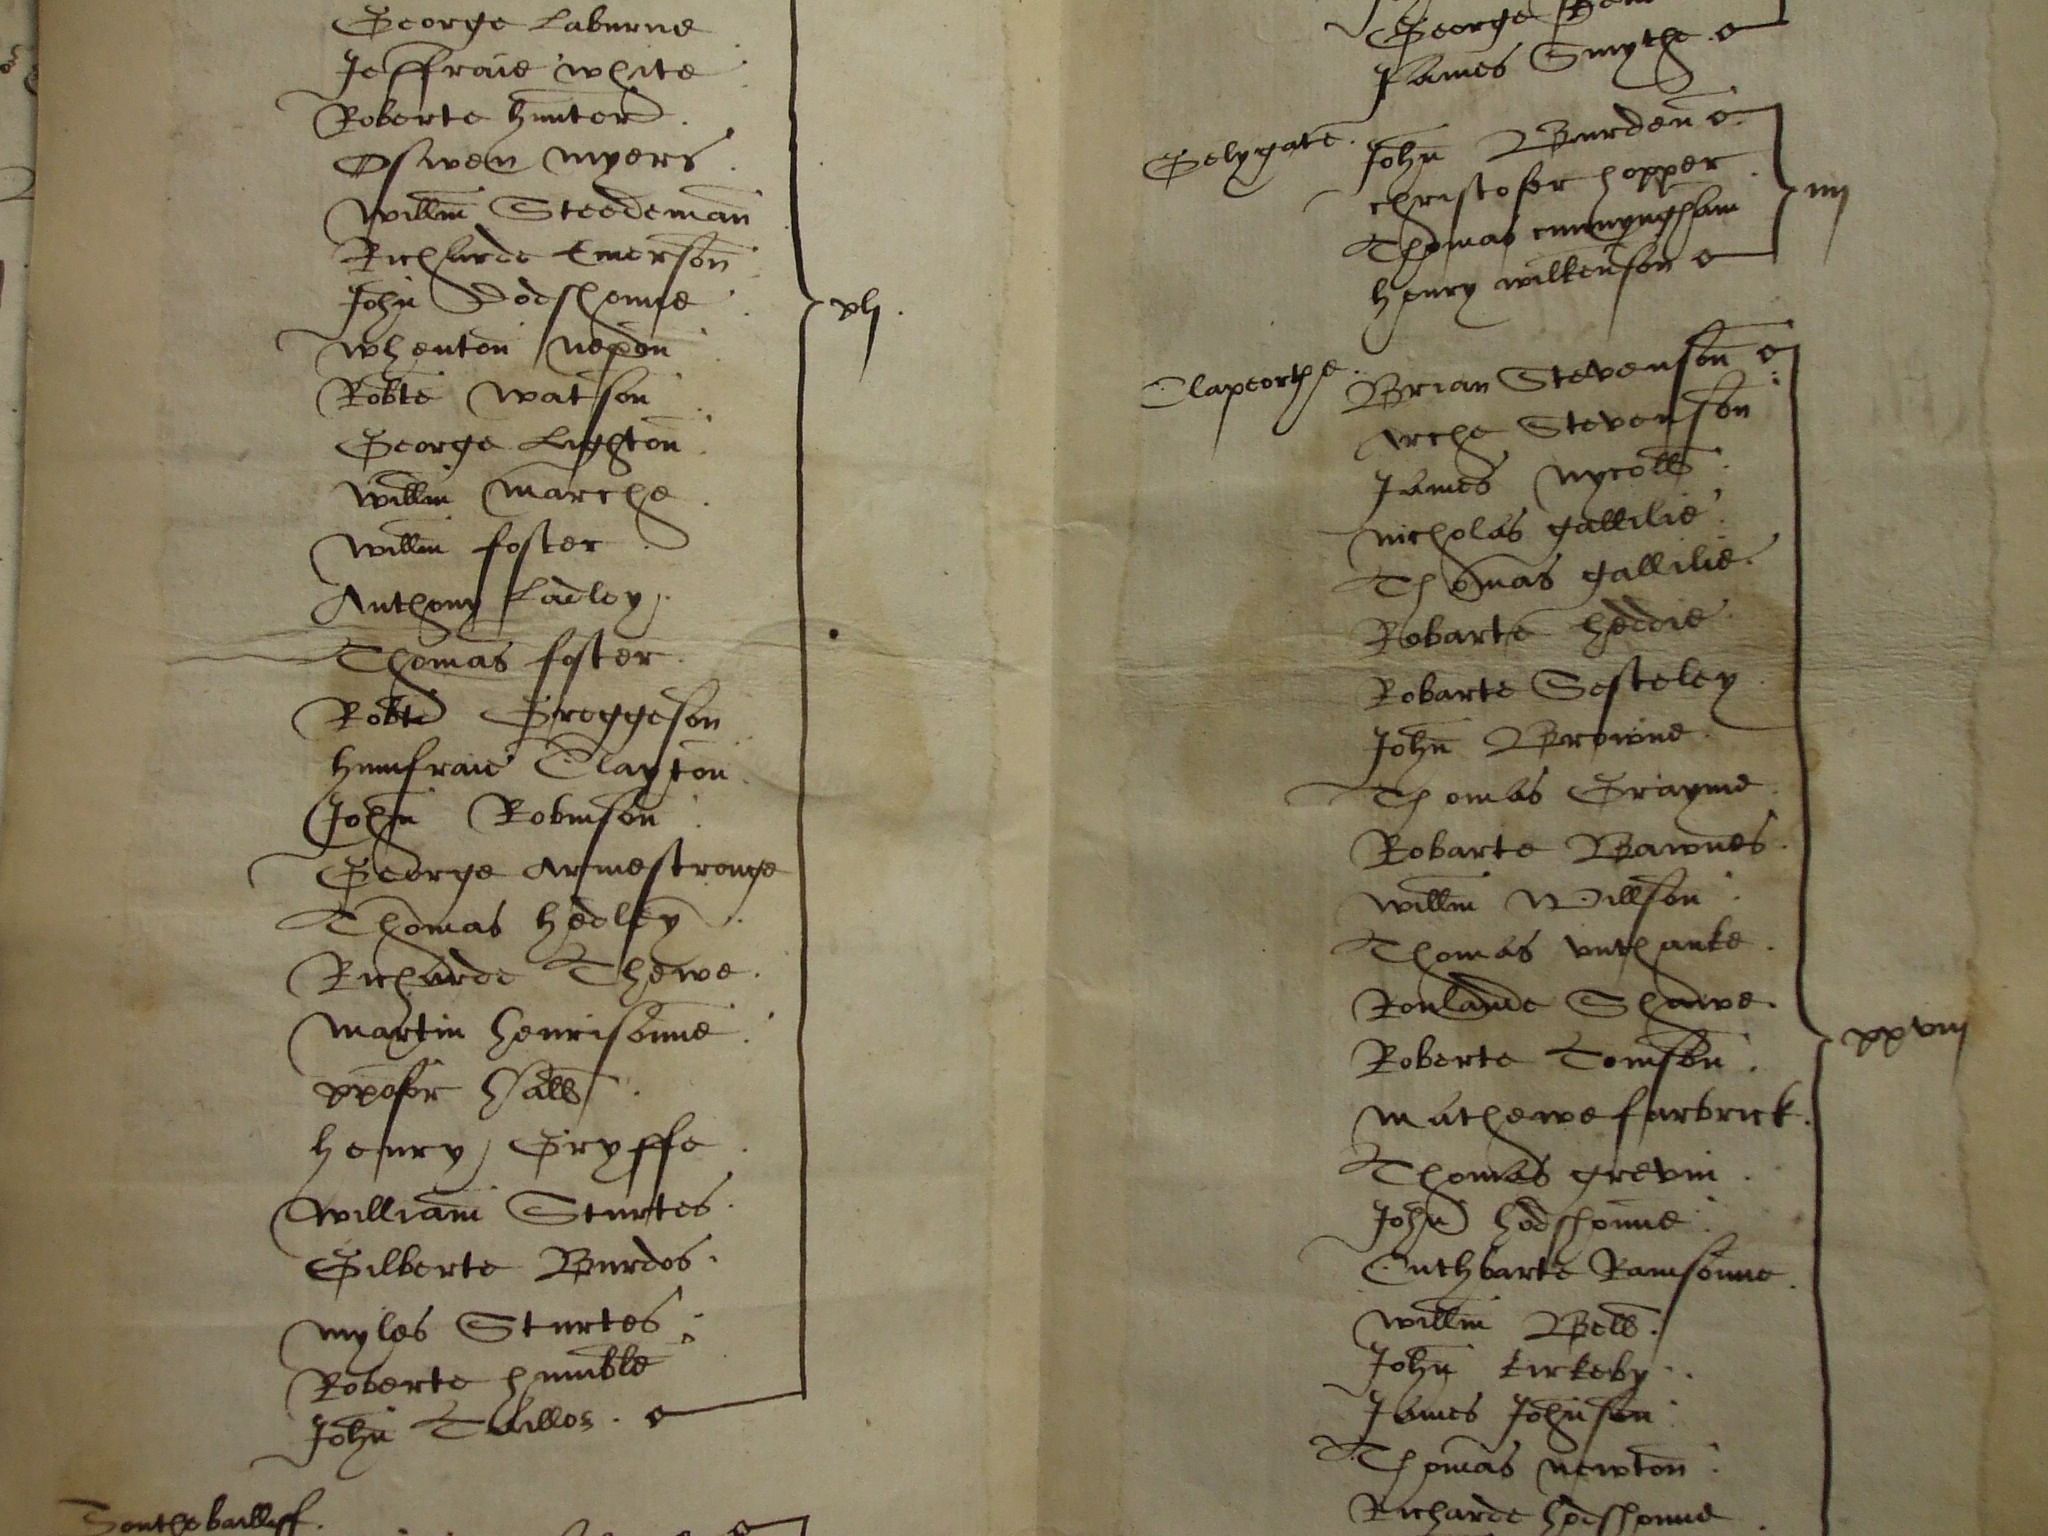 George Laburne
Jeffraie white
Roberte hunter
Oswen myers
Willm Steedeman
Richarde Emerson
John Dodshonne
Whenton
Robte Watson
George Lighton
Willm Marche
Willm foster
Anthony Ladley
Thomas foster
Robte Greggeson
humfraie Clayton
John Robinson
George Armestronge
Thomas hedley
Richarde Thewe
Martin henrisonne
xpofer hall
henry Gryffe
William Sturtes
Gilberte Burdos
Myles Sturtes
Roberte humble
John Taillor
xlj
Southe bailliff
George
James Smythe
Gelygate
John Burden
christofer hopper
Thomas cunnyngham
henry wilkenson
iiij
Clapeorthe
Brian Stevenson
Arche Stevenson
James nycoll
nicholas gallilie
Thomas gallilie
Robarte heddie
Robarte Sesteley
John Browne
Thomas Grayme
Robarte Bawnes
Willm Willson
Thomas vnthanke
Roulande Shawe
Roberte Tomson
Mathewe farbrick
Thomas grevin
John hodshonne
Cuthbarte Ramsonne
Willm Bell
John kirkeby
James Johnson
Thomas newton
Richarde hodshonne
xxviij